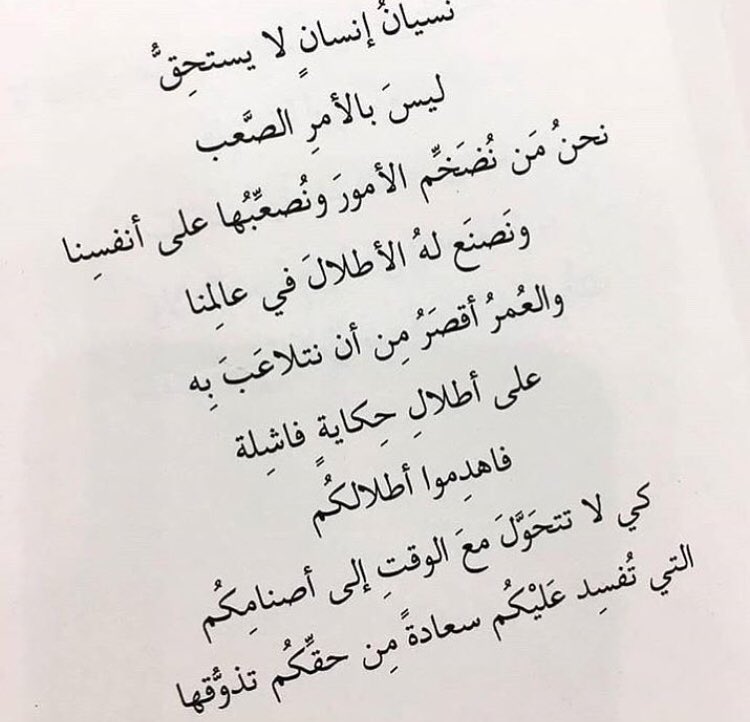 نسيانُ إنسانٍ لا يستحِقُّ
ليسَ بالأمرِ الصَّعب
نحنُ مَن نُضَخِّم الأمورَ ونُصعِّبُها على أنفسِنا
ونَصنَع لهُ الأطلالَ في عالمِنا
والعُمرُ أقصَرُ مِن أن نتلاعَبَ بِه
على أطلالِ حِكايةٍ فاشِلة
فاهدِموا أطلالكُم
كي لا تتحَوَّلَ معَ الوقتِ إلى أصنامِكُم
التي تُفسِد عَلَيْكُم سعادةً مِن حقِّكُم تذوُّقها